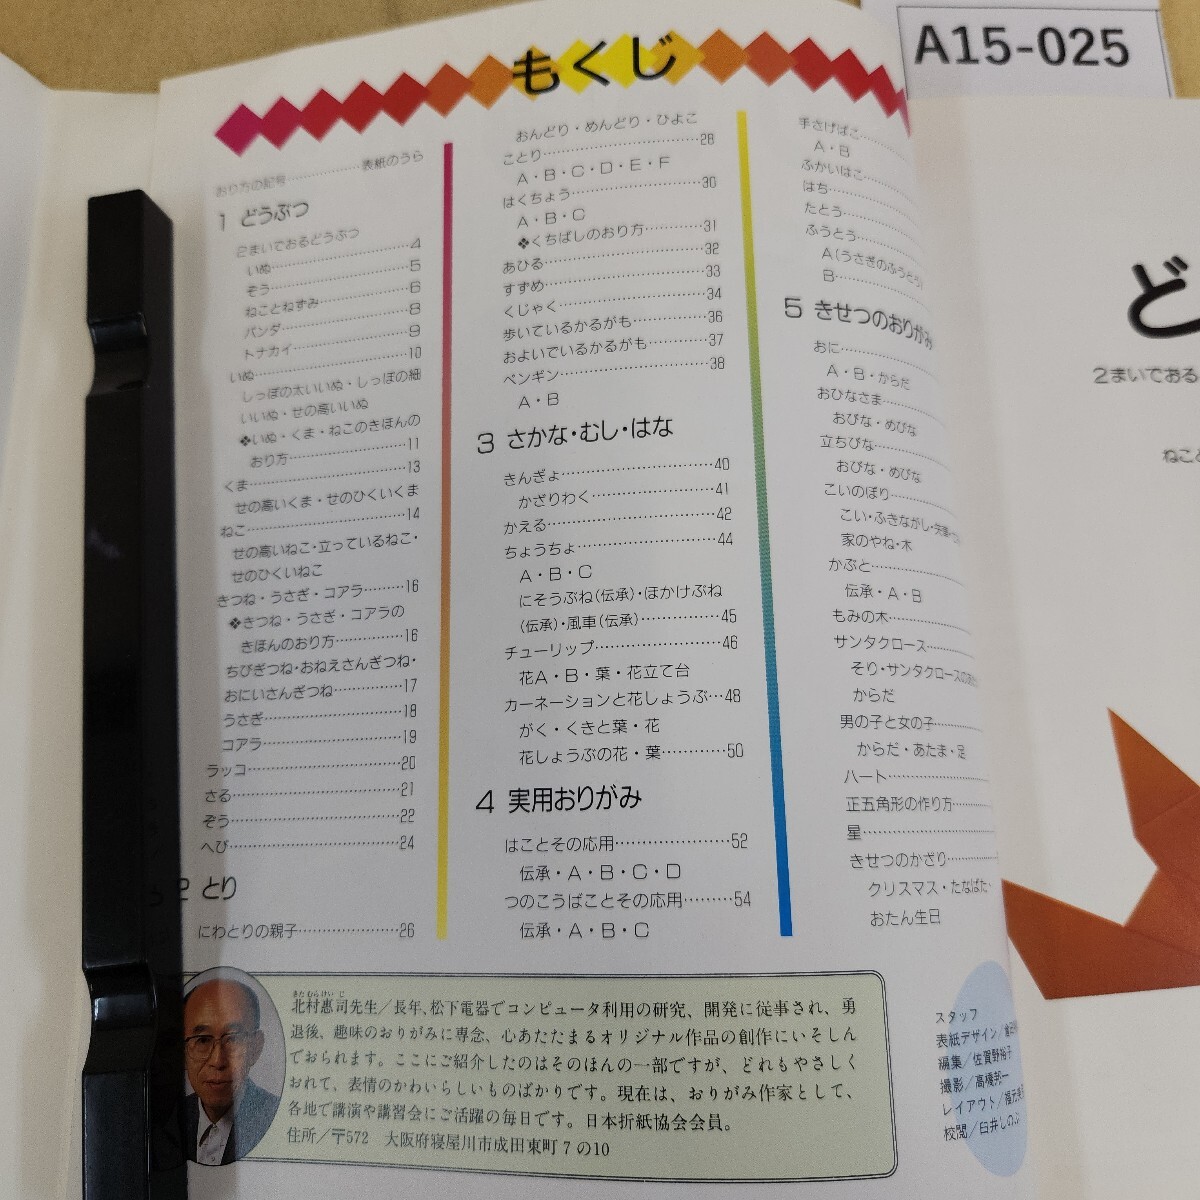 A15-025
もくじ
おり方の記号……………表紙のうら
1 どうぶつ
2まいでおるどうぶつ
いぬ……………………4
ぞう……………………5
ねことねずみ……………6
パンダ……………………8
トナカイ…………………9
いぬ………………………10
しっぽの太いいぬ・しっぽの細
いいぬ・せの高いいぬ
❖いぬ・くま・ねこのきほんの
おり方……………………11
くま………………………13
せの高いくま・せのひくいくま
ねこ………………………14
せの高いねこ・立っているねこ・
せのひくいねこ
きつね・うさぎ・コアラ………16
❖きつね・うさぎ・コアラの
きほんのおり方……………16
ちびぎつね・おねえさんぎつね・
おにいさんぎつね……………17
うさぎ……………………18
コアラ……………………19
ラッコ……………………20
さる………………………21
ぞう………………………22
へび………………………24
2 とり
にわとりの親子……………26
おんどり・めんどり・ひよこ
ことり……………………28
A・B・C・D・E・F
はくちょう………………30
A・B・C
❖くちばしのおり方…………31
あひる……………………32
すずめ……………………33
くじゃく…………………34
歩いているかるがも…………36
およいでいるかるがも………37
ペンギン…………………38
A・B
3 さかな・むし・はな
きんぎょ…………………40
かざりわく………………41
かえる……………………42
ちょうちょ………………44
A・B・C
にそうぶね(伝承)・ほかけぶね
(伝承)・風車(伝承)……………45
チューリップ……………46
花A・B・葉・花立て台
カーネーションと花しょうぶ…48
がく・くきと葉・花
花しょうぶの花・葉…………50
4 実用おりがみ
はことその応用……………52
伝承・A・B・C・D
つのこうばことその応用………54
伝承・A・B・C
手さげばこ…………
A・B
ふかいはこ…………
はち…………
たとう…………
ふうとう…………
A(うさぎのふうとう)
B…………
5 きせつのおりがみ
おに…………
A・B・からだ
おひなさま…………
おびな・めびな
立ちびな…………
おびな・めびな
こいのぼり…………
こい・ふきながし・矢車・
家のやね・木
かぶと…………
伝承・A・B
もみの木…………
サンタクロース…………
そり・サンタクロースの
からだ
男の子と女の子…………
からだ・あたま・足
ハート…………
正五角形の作り方…………
星…………
きせつのかざり…………
クリスマス・たなばた・
おたん生日
きたむらけいじ
北村惠司先生／長年、松下電器でコンピュータ利用の研究、開発に従事され、勇
退後、趣味のおりがみに専念、心あたたまるオリジナル作品の創作にいそしん
でおられます。ここにご紹介したのはそのほんの一部ですが、どれもやさしく
おれて、表情のかわいらしいものばかりです。現在は、おりがみ作家として、
各地で講演や講習会にご活躍の毎日です。日本折紙協会会員。
住所／〒572　大阪府寝屋川市成田東町7の10
スタッフ
表紙デザイン／
編集／佐賀野裕子
撮影／高橋邦一
レイアウト／
校閲／臼井しのぶ
ど
2まいでおる
ねこと